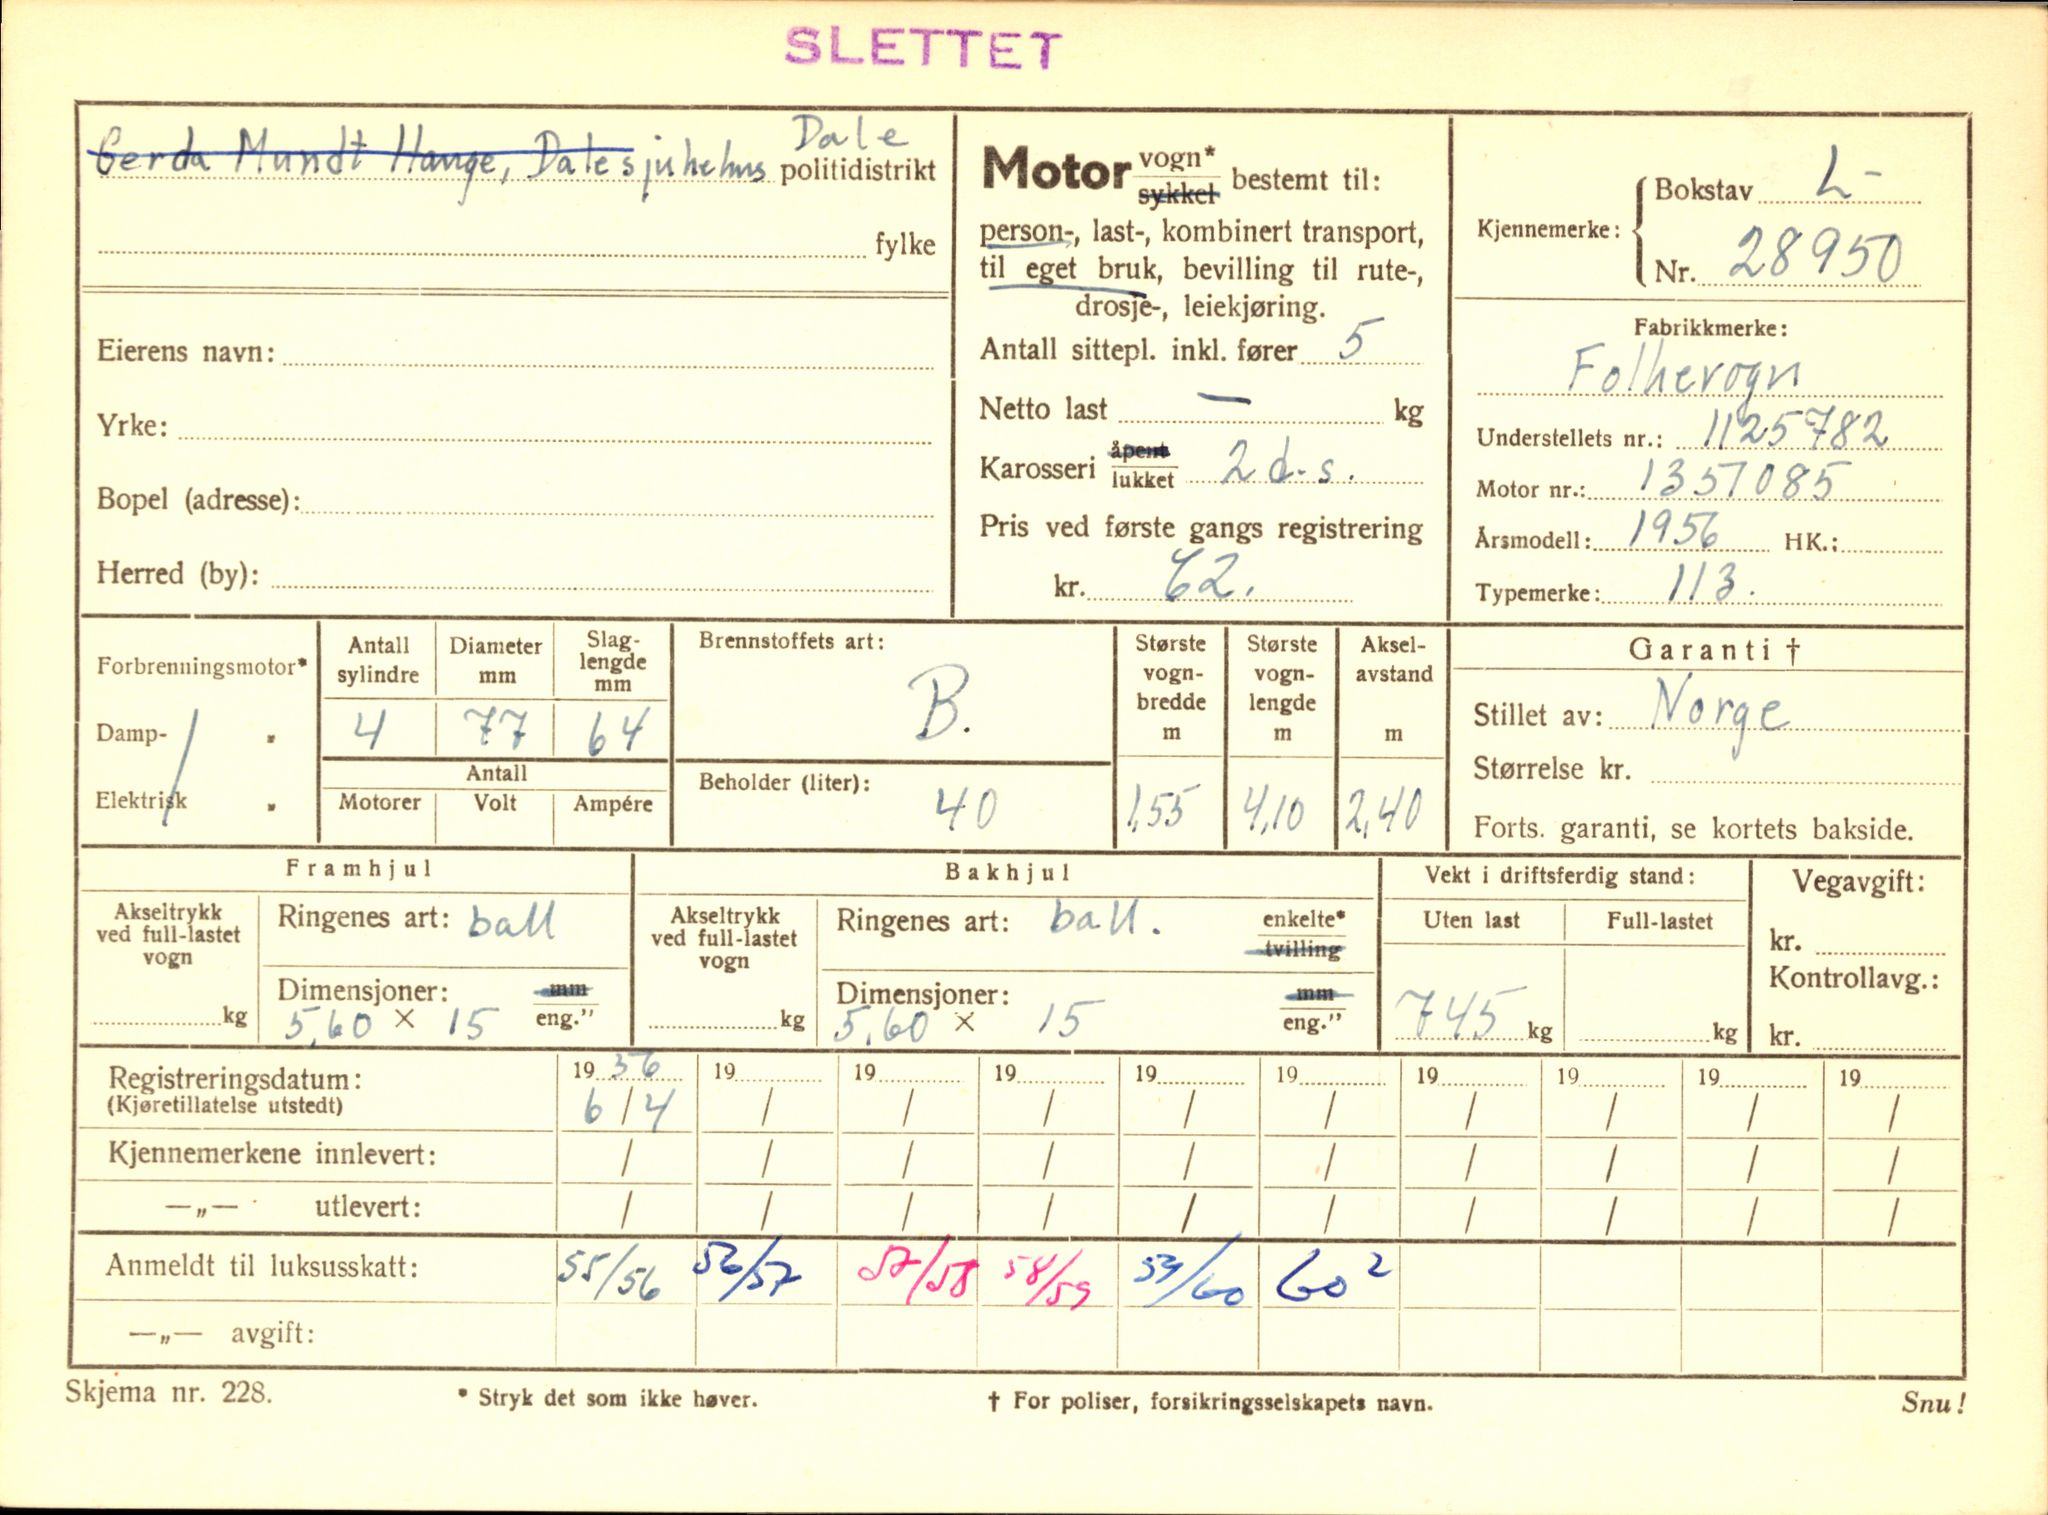 SLETTET
Gerda Mundt Hauge, Dale sjukehus Dale politidistrikt
fylke
Eierens navn:
Yrke:
Bopel (adresse):
Herred (by):
Motor vogn* sykkel bestemt til:
person-, last-, kombinert transport,
til eget bruk, bevilling til rute-,
drosje-, leiekjøring.
Antall sittepl. inkl. fører 5
Netto last — kg
Karosseri åpent lukket 2 d-s.
Pris ved første gangs registrering
kr. 62.
Kjennemerke: Bokstav L-
Nr. 28950
Fabrikkmerke:
Folkevogn
Understellets nr.: 1125782
Motor nr.: 1357085
Årsmodell: 1956 HK.:
Typemerke: 113.
Forbrenningsmotor*
Damp- „
Elektrisk „
Antall sylindre
4
Diameter mm
77
Slag-lengde mm
64
Antall
Motorer Volt Ampére
Brennstoffets art:
B.
Beholder (liter):
40
Største vogn-bredde m
1,55
Største vogn-lengde m
4,10
Aksel-avstand m
2,40
Garanti †
Stillet av: Norge
Størrelse kr.
Forts. garanti, se kortets bakside.
Framhjul
Akseltrykk ved full-lastet vogn
kg
Ringenes art: ball
Dimensjoner: mm
5,60 × 15 eng.”
Bakhjul
Akseltrykk ved full-lastet vogn
kg
Ringenes art: ball. enkelte* tvilling
Dimensjoner: mm
5,60 × 15 eng.”
Vekt i driftsferdig stand:
Uten last Full-lastet
745 kg kg
Vegavgift:
kr.
Kontrollavg.:
kr.
Registreringsdatum: 1956 19 19 19 19 19 19 19 19 19
(Kjøretillatelse utstedt) 6/4 / / / / / / / / /
Kjennemerkene innlevert: / / / / / / / / / /
—„— utlevert: / / / / / / / / / /
Anmeldt til luksusskatt: 55/56 56/57 57/58 58/59 59/60 60²
—„— avgift:
Skjema nr. 228. * Stryk det som ikke høver. † For poliser, forsikringsselskapets navn. Snu!